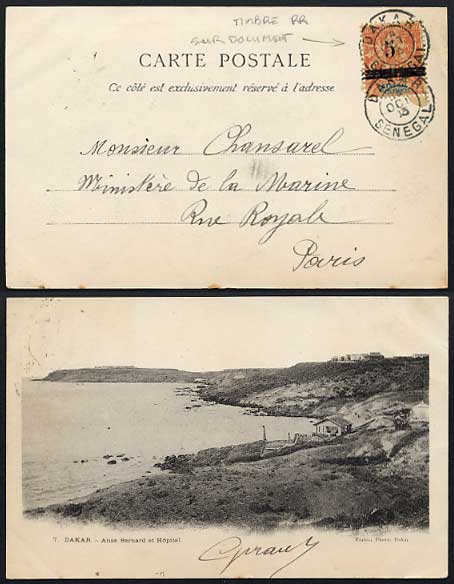 TIMBRE RR
SUR DOCUMENT
CARTE POSTALE
Ce côté est exclusivement réservé à l'adresse
DAKAR
5
DAKAR
OCT
SENEGAL
Monsieur Chansarel
Ministère de la Marine
Rue Royale
Paris
7. DAKAR. - Anse Bernard et Hôpital
Dakar